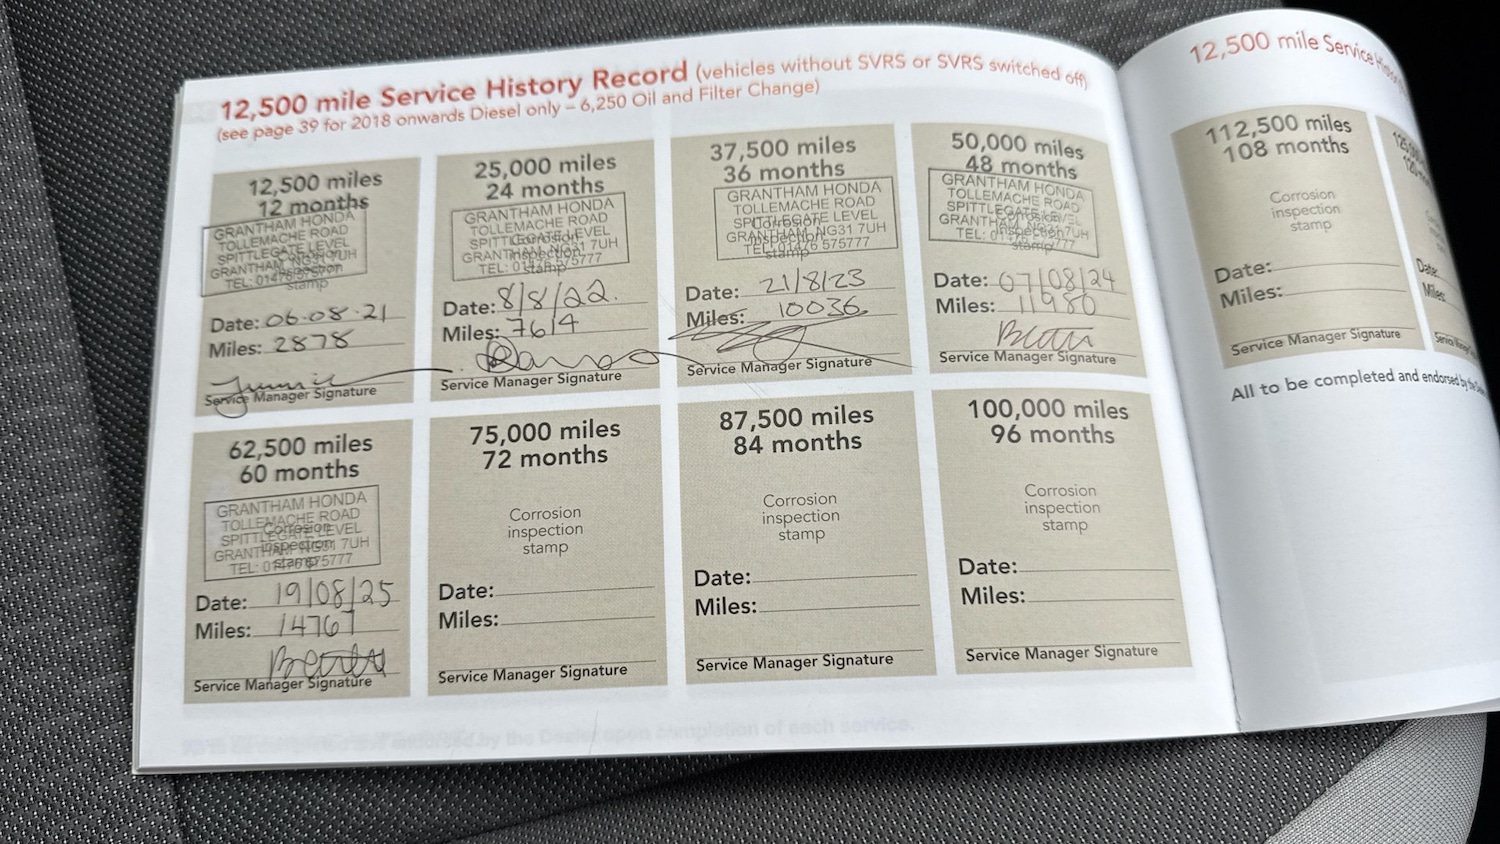 12,500 mile Service History Record (vehicles without SVRS or SVRS switched off)
(see page 39 for 2018 onwards Diesel only – 6,250 Oil and Filter Change)
12,500 miles
12 months
GRANTHAM HONDA
TOLLEMACHE ROAD
SPITTLEGATE LEVEL
GRANTHAM, NG31 7UH
stamp
Date: 06.08.21
Miles: 2878
Service Manager Signature
25,000 miles
24 months
GRANTHAM HONDA
TOLLEMACHE ROAD
SPITTLEGATE LEVEL
GRANTHAM, NG31 7UH
TEL: 01476 575777
stamp
Date: 8/8/22.
Miles: 7614
Service Manager Signature
37,500 miles
36 months
GRANTHAM HONDA
TOLLEMACHE ROAD
SPITTLEGATE LEVEL
GRANTHAM, NG31 7UH
TEL: 01476 575777
stamp
Date: 21/8/23
Miles: 10036
Service Manager Signature
50,000 miles
48 months
GRANTHAM HONDA
TOLLEMACHE ROAD
SPITTLEGATE LEVEL
GRANTHAM, NG31 7UH
stamp
Date: 07/08/24
Miles: 11980
Service Manager Signature
62,500 miles
60 months
GRANTHAM HONDA
TOLLEMACHE ROAD
SPITTLEGATE LEVEL
GRANTHAM, NG31 7UH
TEL: 01476 575777
Date: 19/08/25
Miles: 14767
Service Manager Signature
75,000 miles
72 months
Corrosion
inspection
stamp
Date:
Miles:
Service Manager Signature
87,500 miles
84 months
Corrosion
inspection
stamp
Date:
Miles:
Service Manager Signature
100,000 miles
96 months
Corrosion
inspection
stamp
Date:
Miles:
Service Manager Signature
12,500 mile Service
112,500 miles
108 months
Corrosion
inspection
stamp
Date:
Miles:
Service Manager Signature
Date:
Miles:
All to be completed and endorsed by the